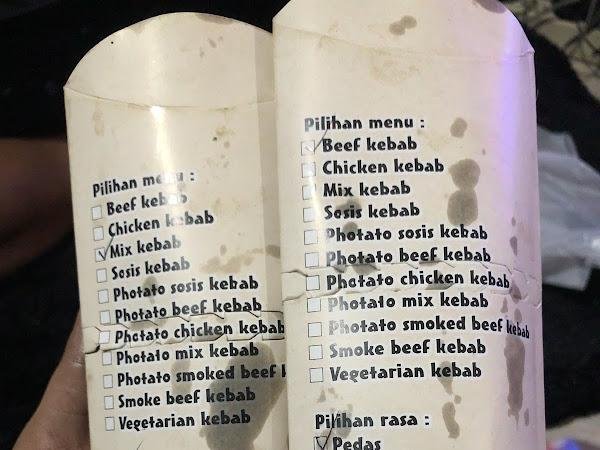 Pilihan menu :
Beef kebab
Chicken kebab
Mix kebab
Sosis kebab
Photato sosis kebab
Photato beef kebab
Photato chicken kebab
Photato mix kebab
Photato smoked beef
Smoke beef kebab
Vegetarian kebab
Pilihan menu :
Beef kebab
Chicken kebab
Mix kebab
Sosis kebab
Photato sosis kebab
Photato beef kebab
Photato chicken kebab
Photato mix kebab
Photato smoked beef kebab
Smoke beef kebab
Vegetarian kebab
Pilihan rasa :
Pedas